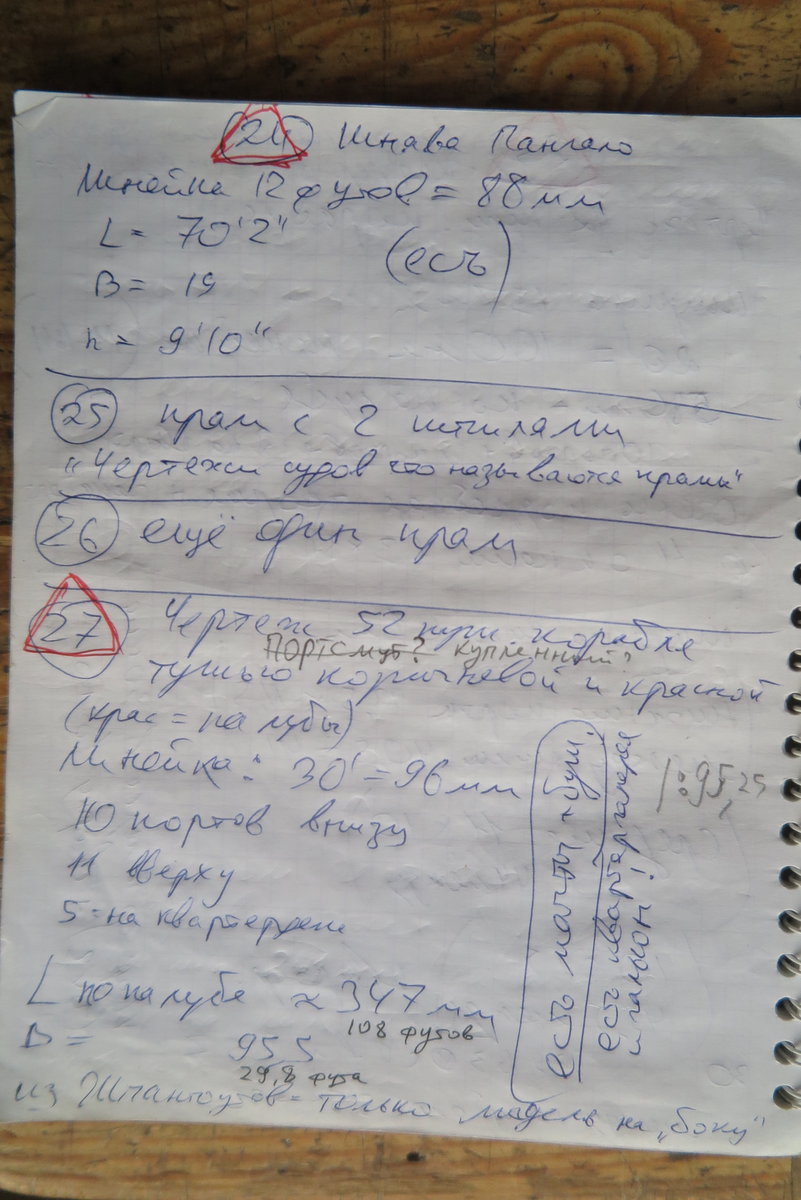 24 Шнява Пангало
Линейка 12 футов = 88 мм
L = 70'2"
(есть)
B = 19
h = 9'10"
25 прам с 2 штилями
"Чертежи судов что называются прамы"
26 ещё один прам
27 Чертеж 52 пуш корабля
Портсмут? купленный?
тушью коричневой и красной
(крас = палубы)
Линейка: 30' = 96 мм
1:95,25
10 портов внизу
11 вверху
5 на квартердеке
L по палубе ≈ 347 мм
108 футов
B = 95,5
29,8 фута
из Шпангоутов - только мидель на "боку"
есть мачты + буш.
есть квартергалерея
и гальюн!